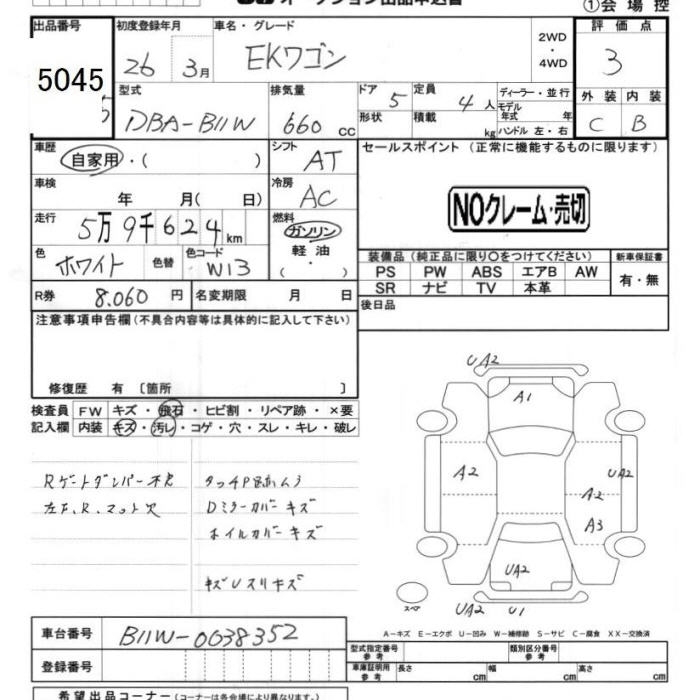 オークション出品申込書
①会場控
出品番号
5045
初度登録年月
26 3月
車名・グレード
EKワゴン
2WD
・
4WD
評価点
3
外装 内装
C B
型式
DBA-B11W
排気量
660 cc
ドア 5
形状
定員 4人
積載 kg
ディーラー・並行
モデル年式 年
ハンドル 左・右
車歴
自家用・( )
シフト
AT
セールスポイント (正常に機能するものに限ります)
NOクレーム・売切
車検
年 月( 日)
冷房
AC
走行
5万9千624km
燃料
ガソリン
軽油
( ・ )
色
ホワイト
色替
色コード
W13
装備品(純正品に限り○をつけてください)
新車保証書
PS PW ABS エアB AW
有・無
SR ナビ TV 本革
R券 8.060円
名変期限 月 日
後日品
注意事項申告欄(不具合内容等は具体的に記入して下さい)
修復歴 有 〔箇所 〕
検査員
記入欄
FW キズ・飛石・ヒビ割・リペア跡・×要
内装 キズ・汚レ・コゲ・穴・スレ・キレ・破レ
Rゲートダンパー不良
タッチP色ムラ
左F.R.マット欠
Dミラーカバーキズ
ホイルカバーキズ
キズUスリキズ
UA2
A1
A2
UA2
A2
A3
UA2
スペア
UA2 U1
A-キズ E-エクボ U-凹み W-補修跡 S-サビ C-腐食 XX-交換済
車台番号
B11W-0038352
登録番号
型式指定番号
参考
類別区分番号
参考
車庫証明用
参考
長さ cm
幅 cm
高さ cm
希望出品コーナー(コーナーは各会場により異なります。)